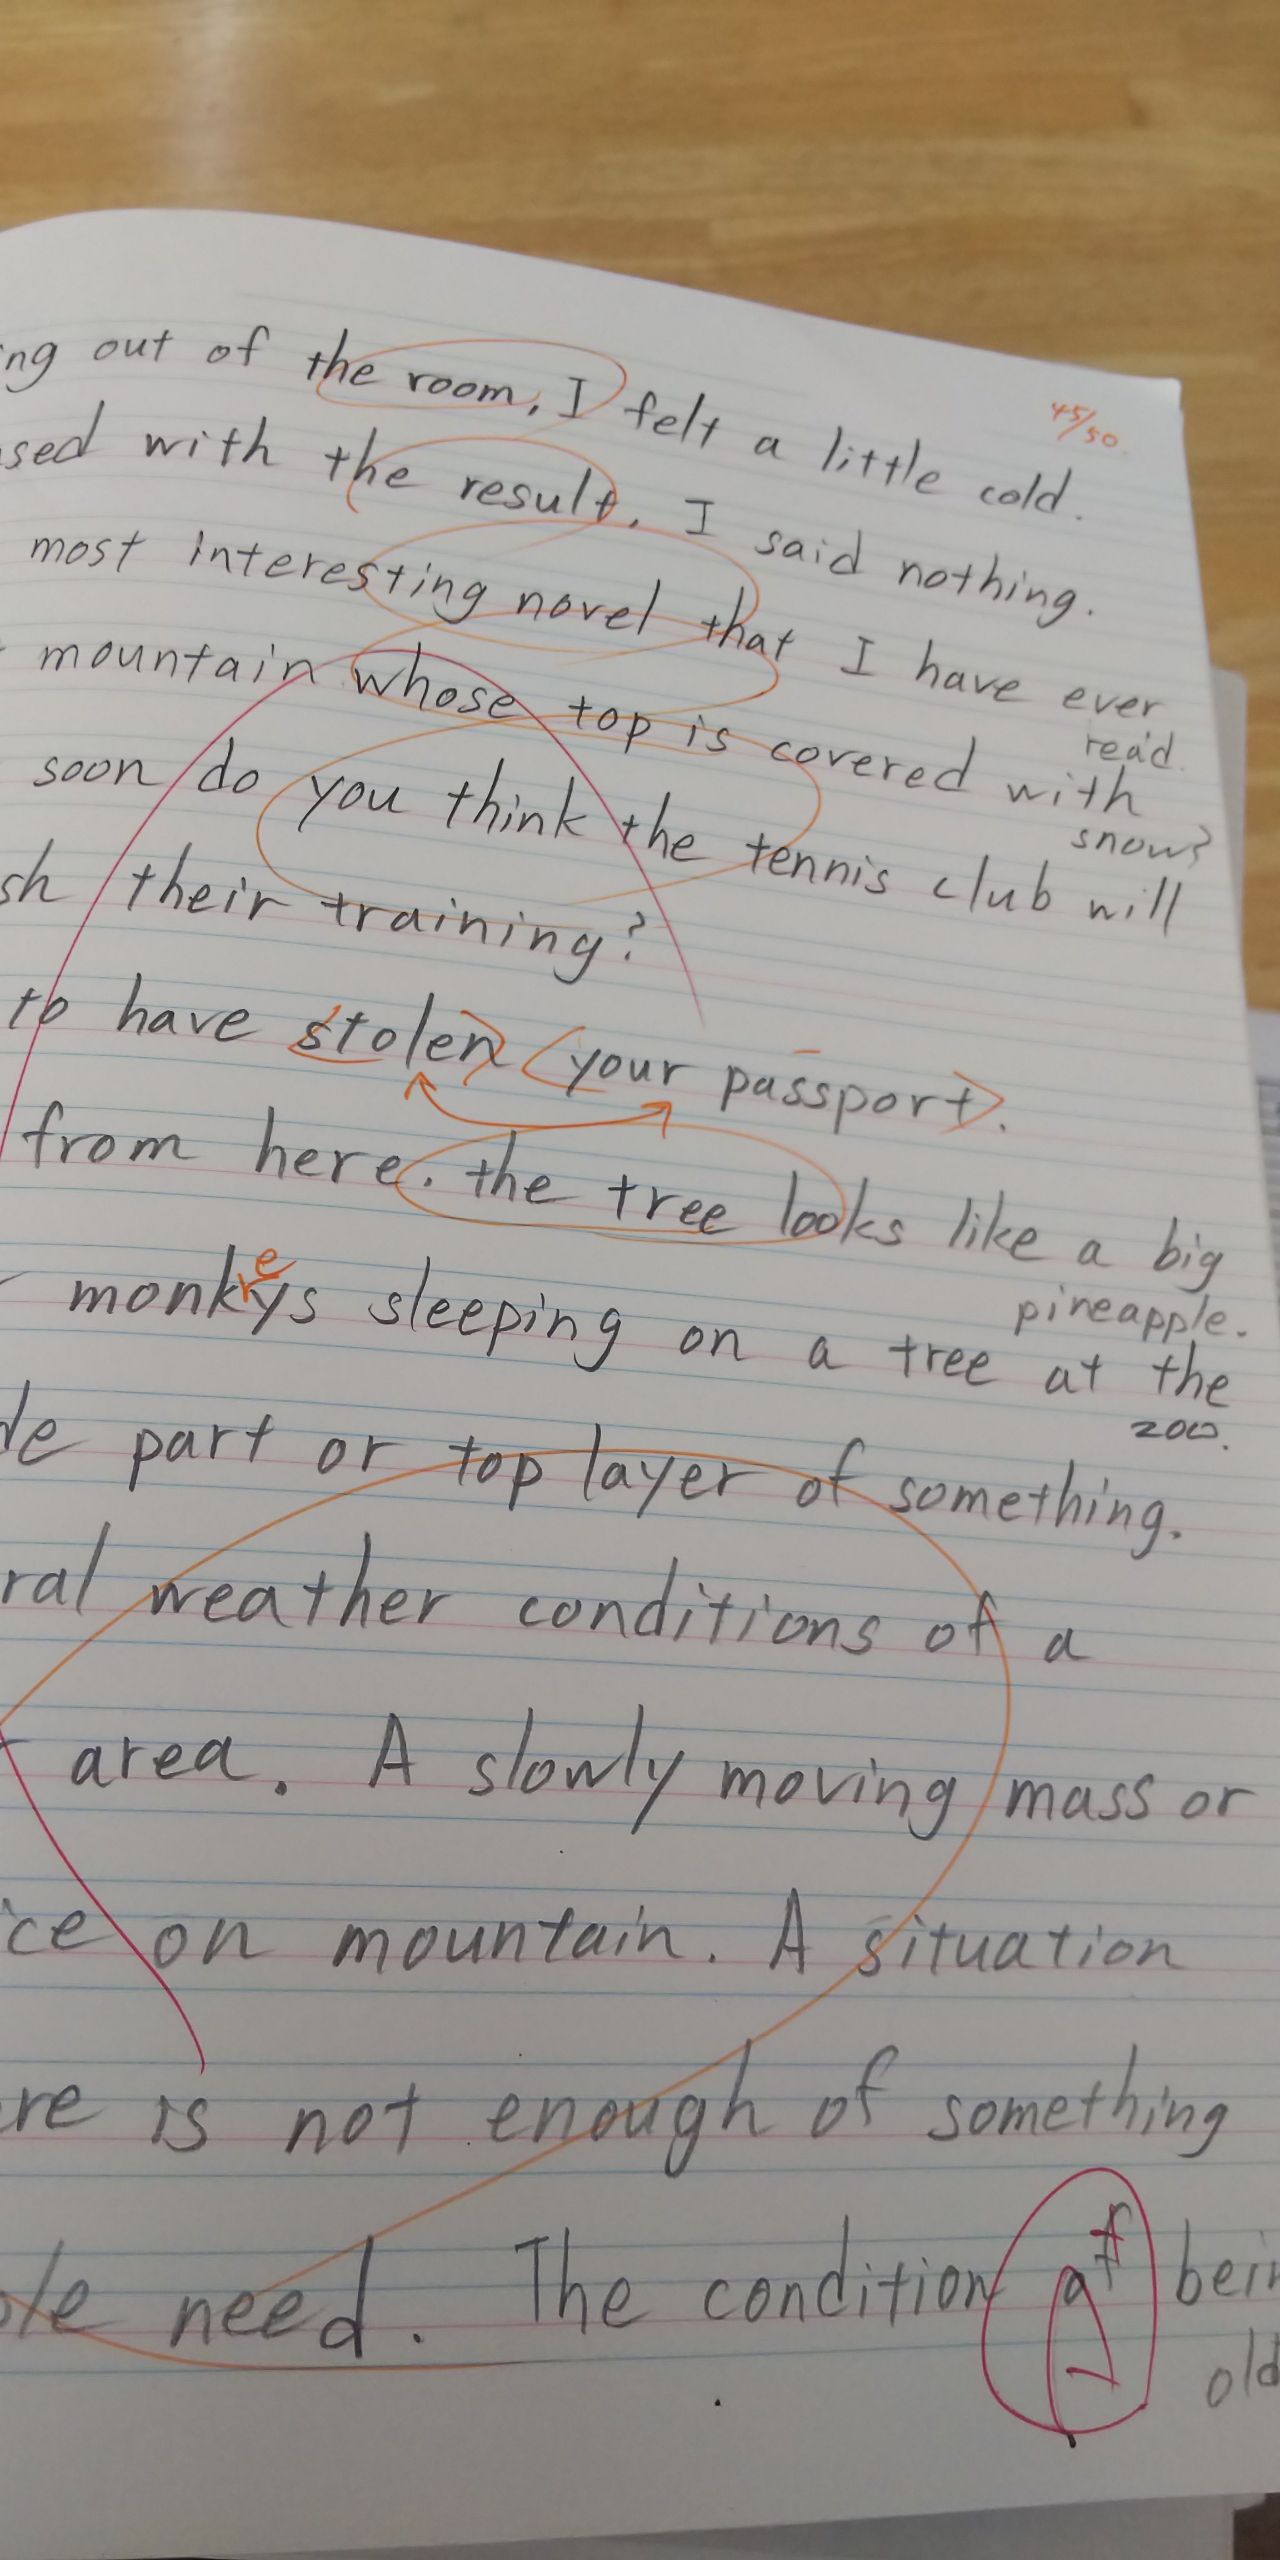 ng out of the room, I felt a little cold.
45/50
sed with the result, I said nothing.
most interesting novel that I have ever
read.
mountain whose top is covered with
snow?
soon do you think the tennis club will
sh their training?
to have stolen your passport.
from here. the tree looks like a big
pineapple.
e
monkys sleeping on a tree at the
zoo.
de part or top layer of something.
ral weather conditions of a
area. A slowly moving mass or
ice on mountain. A situation
ere is not enough of something
ple need. The condition of bein
old